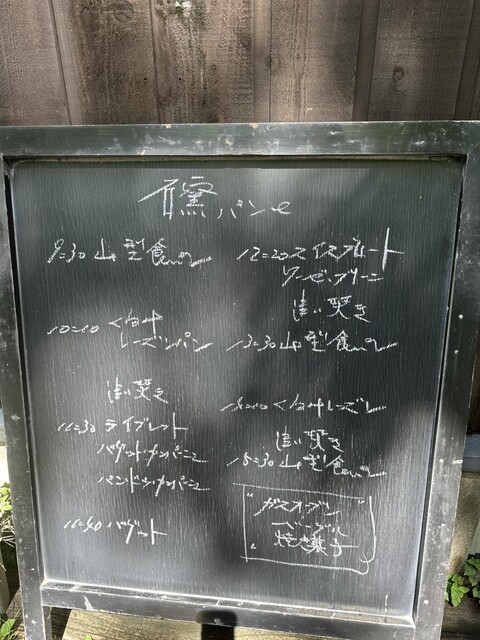 石窯パン
9=30 山型食パン
10=10
レーズンパン
追い焚き
11=30 ライブレット
バゲットカンパーニュ
パンドゥカンパーニュ
11=40 バゲット
12=20 スイスブロート
追い焚き
13=30 山型食パン
レーズン
追い焚き
15=30 山型食パン
"ガスオーブン
ベーグル
焼き菓子"